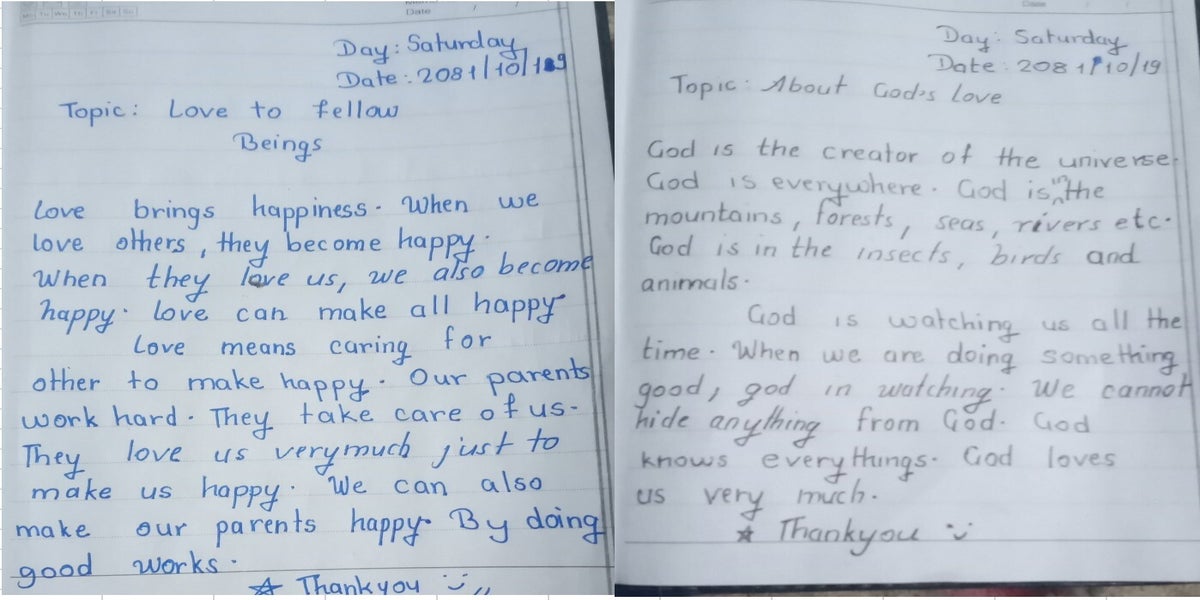 Date
Day: Saturday
Date: 2081/10/19
Topic: Love to fellow
Beings
Love brings happiness. When we
love others, they become happy.
When they love us, we also become
happy. Love can make all happy
Love means caring for
other to make happy. Our parents
work hard. They take care of us.
They love us verymuch just to
make us happy. We can also
make our parents happy. By doing
good works.
Thankyou
Date
Day: Saturday
Date: 2081/10/19
Topic: About God's love
God is the creator of the universe.
God is everywhere. God is in the
mountains, forests, seas, rivers etc.
God is in the insects, birds and
animals.
God is watching us all the
time. When we are doing something
good, god in watching. We cannot
hide anything from God. God
knows everythings. God loves
us very much.
Thankyou